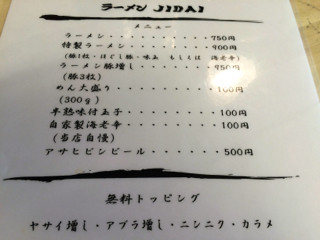 ラーメン JIDAI
メニュー
ラーメン・・・・・・・・・750円
特製ラーメン・・・・・・・900円
(豚1枚・ほぐし豚・味玉 もしくは 海老辛)
ラーメン豚増し・・・・・・950円
(豚3枚)
めん大盛り・・・・・・・・100円
(300g)
半熟味付玉子・・・・・・・100円
自家製海老辛・・・・・・・100円
(当店自慢)
アサヒビンビール・・・・・500円
無料トッピング
ヤサイ増し・アブラ増し・ニンニク・カラメ